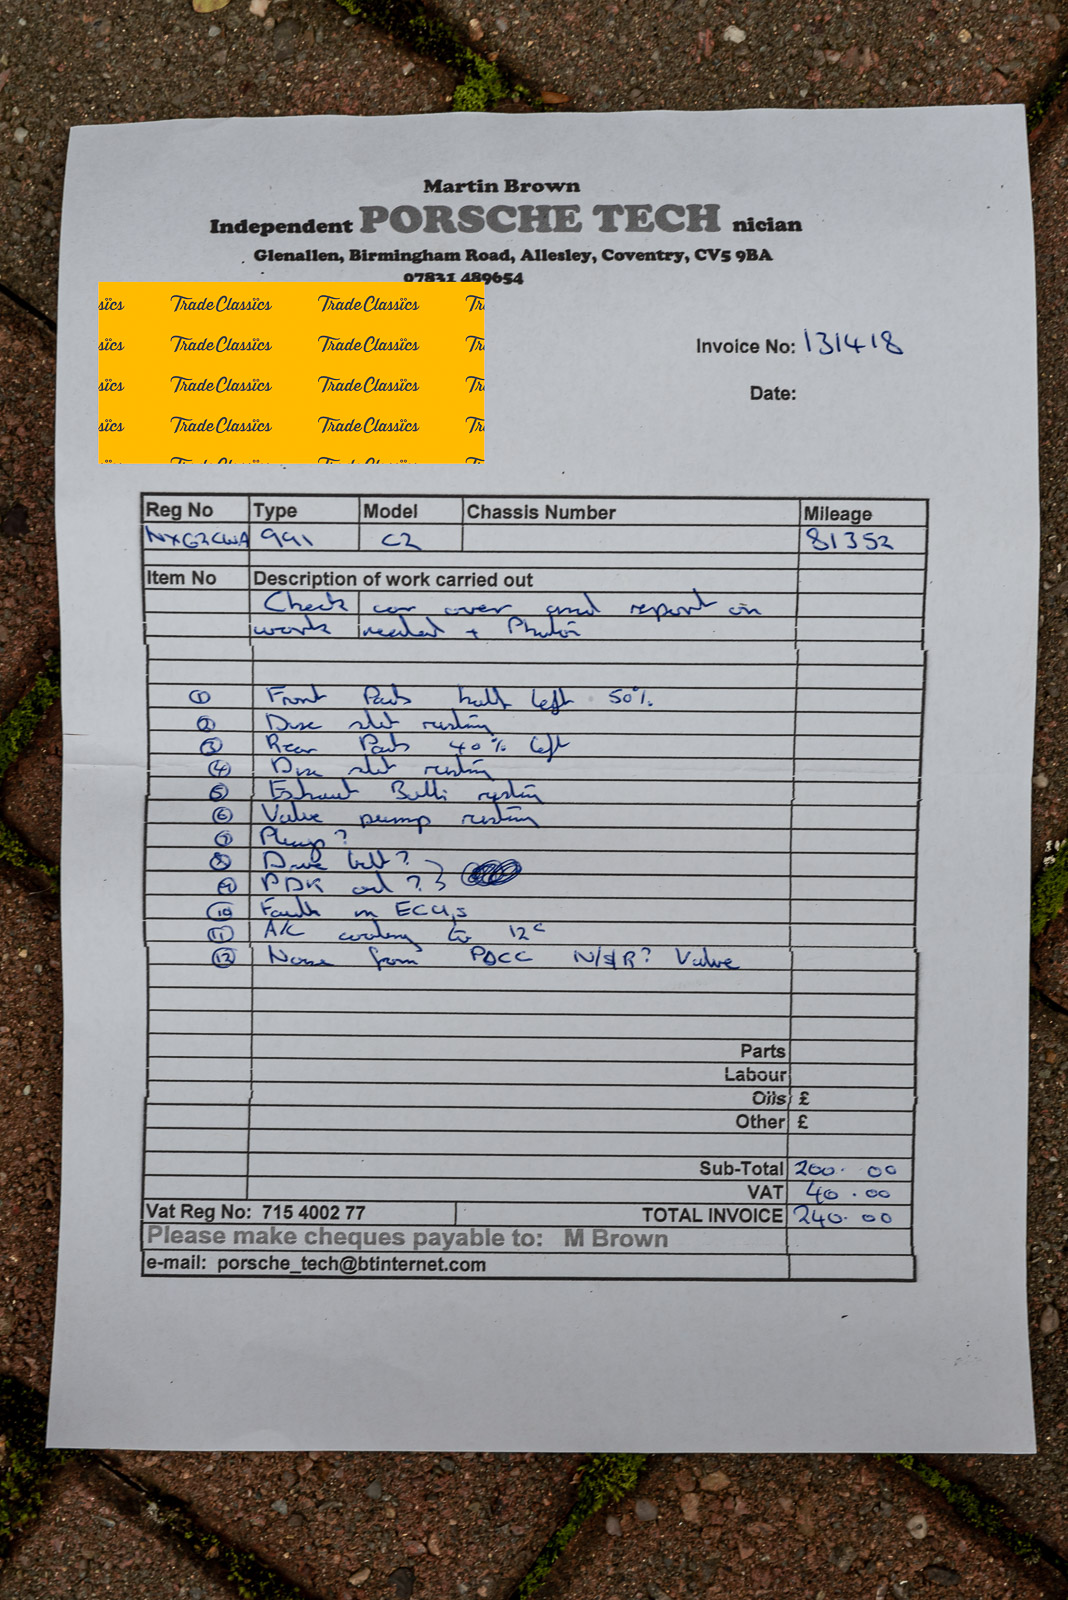 Martin Brown
Independent PORSCHE TECH nician
Glenallen, Birmingham Road, Allesley, Coventry, CV5 9BA
07831 489654
sïcs TradeClassïcs TradeClassïcs Tr
sïcs TradeClassïcs TradeClassïcs Tr
sïcs TradeClassïcs TradeClassïcs Tr
sïcs TradeClassïcs TradeClassïcs Tr
Invoice No: 131418
Date:
Reg No Type Model Chassis Number Mileage
NX62CWA 991 C2 81352
Item No Description of work carried out
Check car over and report on
work needed + Photos
1 Front Pads half left 50%
2 Disc slet rusting
3 Rear Pads 40% left
4 Disc slet rusting
5 Exhaust Bolts rusting
6 Valve pump rusting
7 Plugs?
8 Drive belt?
9 PDK oil?
10 Faults in ECU,s
11 A/C cooling to 12c
12 Noise from PDCC N/S/R? Valve
Parts
Labour
Oils £
Other £
Sub-Total 200.00
VAT 40.00
Vat Reg No: 715 4002 77 TOTAL INVOICE 240.00
Please make cheques payable to: M Brown
e-mail: porsche_tech@btinternet.com